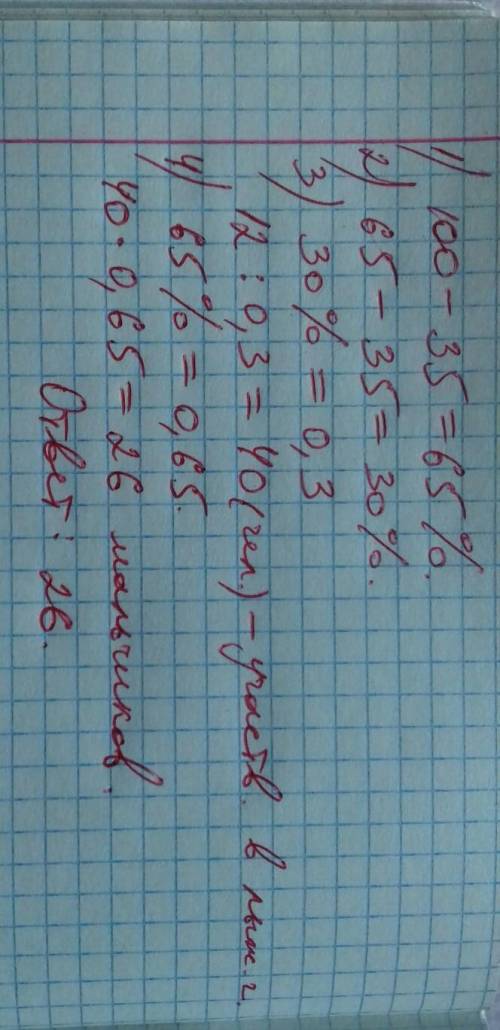 1) 100 - 35 = 65%.
2) 65 - 35 = 30%.
3) 30% = 0,3
12 : 0,3 = 40 (чел.) - участв. в лыж. г.
4) 65% = 0,65.
40 · 0,65 = 26 мальчиков.
Ответ: 26.